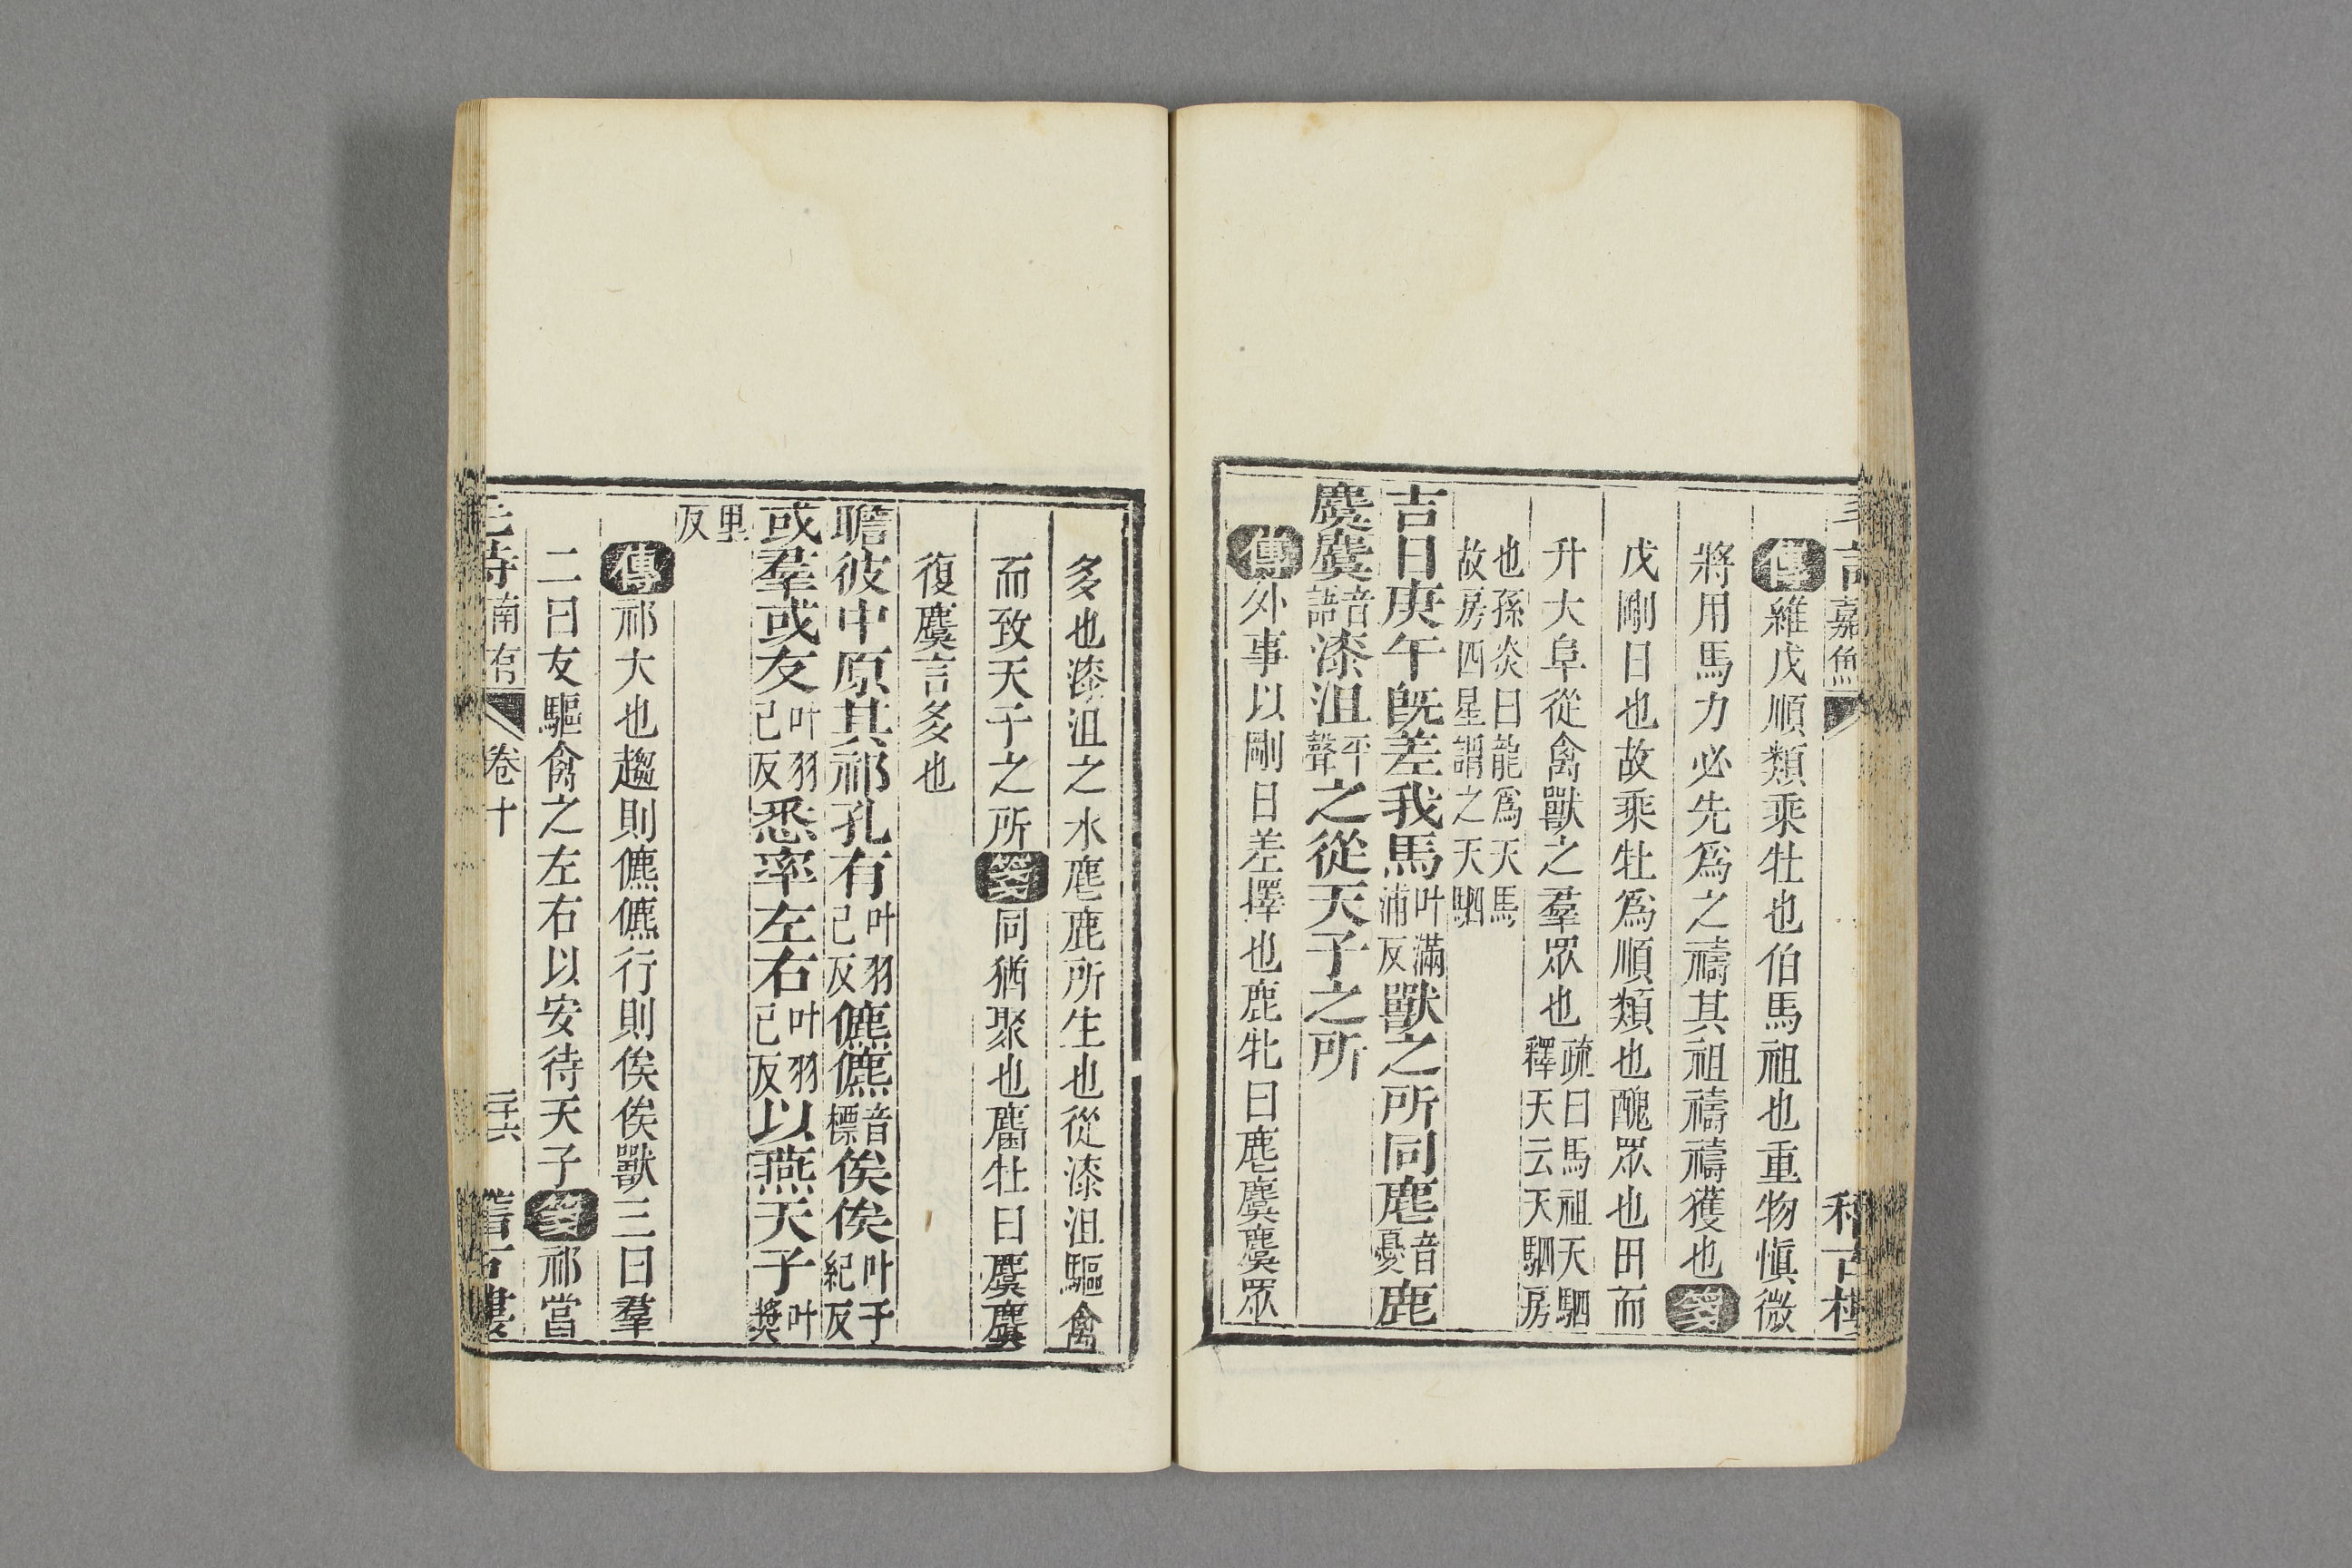 傳維戊順類乘牡也伯馬祖也重物慎微
將用馬力必先為之禱其祖禱禱獲也箋
戊剛日也故乘牡為順類也醜眾也田而
升大阜從禽獸之羣眾也疏曰馬祖天駟釋天云天駟房
也孫炎曰龍為天馬故房四星謂之天駟
吉日庚午旣差我馬叶滿浦反獸之所同麀音憂鹿
麌麌音語漆沮平聲之從天子之所
傳外事以剛日差擇也鹿牝曰麀麌麌眾
多也漆沮之水麀鹿所生也從漆沮驅禽
而致天子之所箋同猶聚也麕牡曰麌麌
復麌言多也
瞻彼中原其祁孔有叶羽己反儦儦音標俟俟叶于紀反
或羣或友叶羽己反悉率左右叶羽己反以燕天子叶獎
里反
傳祁大也趨則儦儦行則俟俟獸三曰羣
二曰友驅禽之左右以安待天子箋祁當
卷十